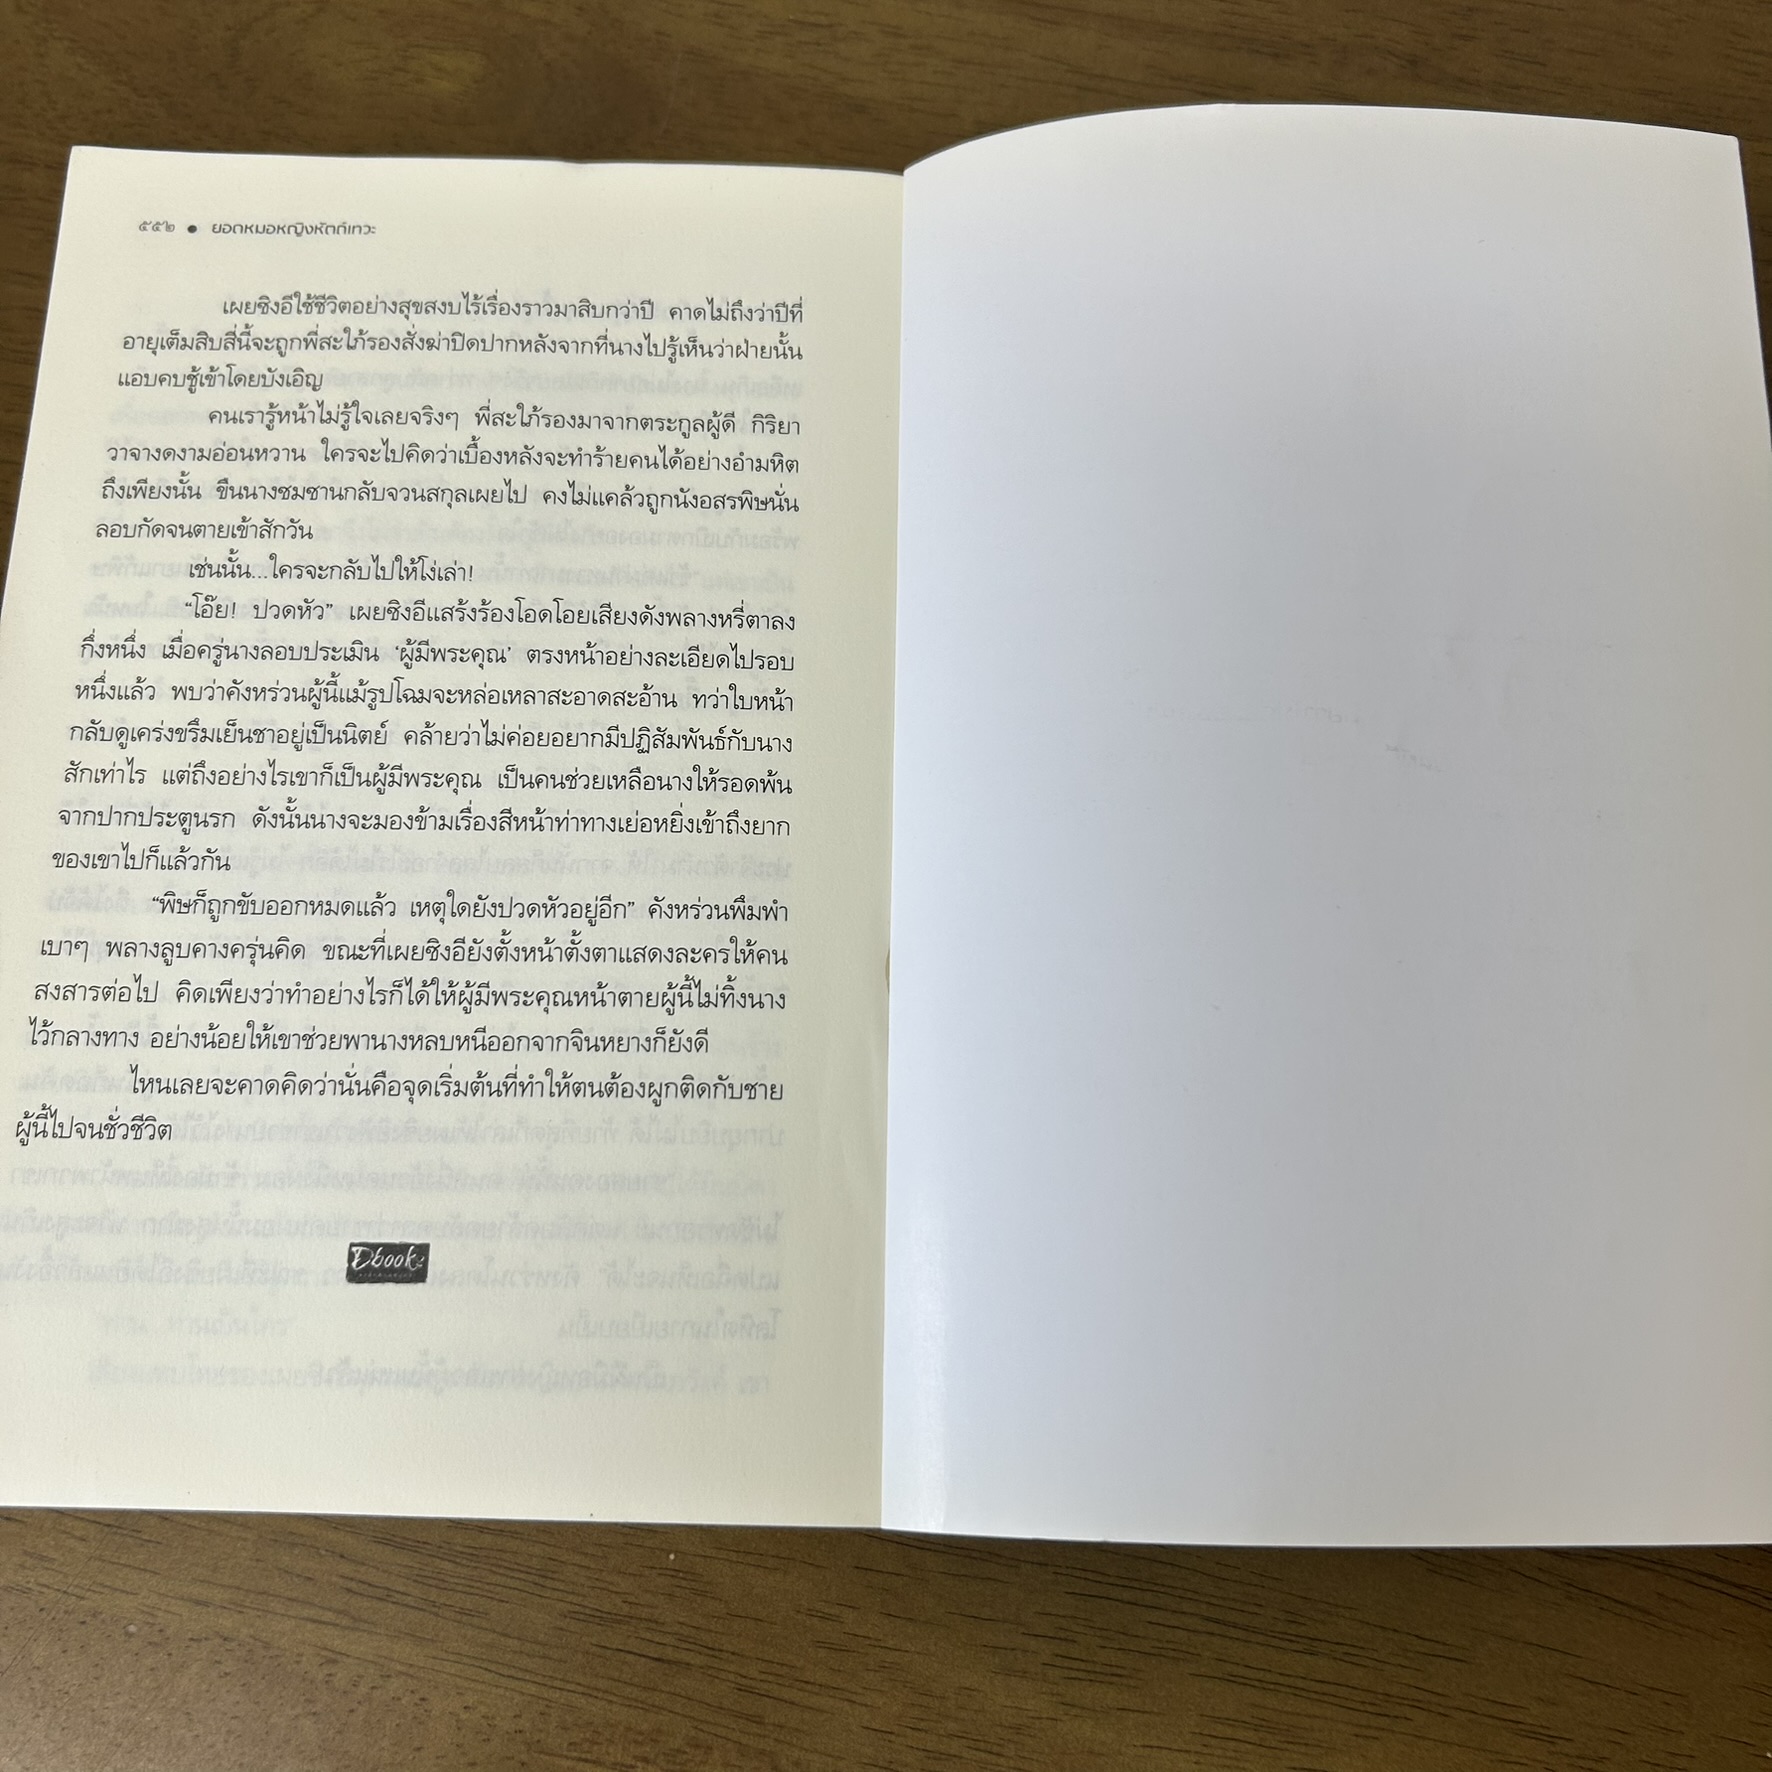 ๕๕๒ ● ยอดหมอหญิงหัตถ์เทวะ
เผยซิงอีใช้ชีวิตอย่างสุขสงบไร้เรื่องราวมาสิบกว่าปี คาดไม่ถึงว่าปีที่
อายุเต็มสิบสี่นี้จะถูกพี่สะใภ้รองสั่งฆ่าปิดปากหลังจากที่นางไปรู้เห็นว่าฝ่ายนั้น
แอบคบชู้เข้าโดยบังเอิญ
คนเรารู้หน้าไม่รู้ใจเลยจริงๆ พี่สะใภ้รองมาจากตระกูลผู้ดี กิริยา
วาจางดงามอ่อนหวาน ใครจะไปคิดว่าเบื้องหลังจะทำร้ายคนได้อย่างอำมหิต
ถึงเพียงนั้น ขืนนางซมซานกลับจวนสกุลเผยไป คงไม่แคล้วถูกนังอสรพิษนั่น
ลอบกัดจนตายเข้าสักวัน
เช่นนั้น...ใครจะกลับไปให้โง่เล่า!
“โอ๊ย! ปวดหัว” เผยซิงอีแสร้งร้องโอดโอยเสียงดังพลางหรี่ตาลง
กึ่งหนึ่ง เมื่อครู่นางลอบประเมิน ‘ผู้มีพระคุณ’ ตรงหน้าอย่างละเอียดไปรอบ
หนึ่งแล้ว พบว่าคังหร่วนผู้นี้แม้รูปโฉมจะหล่อเหลาสะอาดสะอ้าน ทว่าใบหน้า
กลับดูเคร่งขรึมเย็นชาอยู่เป็นนิตย์ คล้ายว่าไม่ค่อยอยากมีปฏิสัมพันธ์กับนาง
สักเท่าไร แต่ถึงอย่างไรเขาก็เป็นผู้มีพระคุณ เป็นคนช่วยเหลือนางให้รอดพ้น
จากปากประตูนรก ดังนั้นนางจะมองข้ามเรื่องสีหน้าท่าทางเย่อหยิ่งเข้าถึงยาก
ของเขาไปก็แล้วกัน
“พิษก็ถูกขับออกหมดแล้ว เหตุใดยังปวดหัวอยู่อีก” คังหร่วนพึมพำ
เบาๆ พลางลูบคางครุ่นคิด ขณะที่เผยซิงอียังตั้งหน้าตั้งตาแสดงละครให้คน
สงสารต่อไป คิดเพียงว่าทำอย่างไรก็ได้ให้ผู้มีพระคุณหน้าตายผู้นี้ไม่ทิ้งนาง
ไว้กลางทาง อย่างน้อยให้เขาช่วยพานางหลบหนีออกจากจินหยางก็ยังดี
ไหนเลยจะคาดคิดว่านั่นคือจุดเริ่มต้นที่ทำให้ตนต้องผูกติดกับชาย
ผู้นี้ไปจนชั่วชีวิต
Dbooks